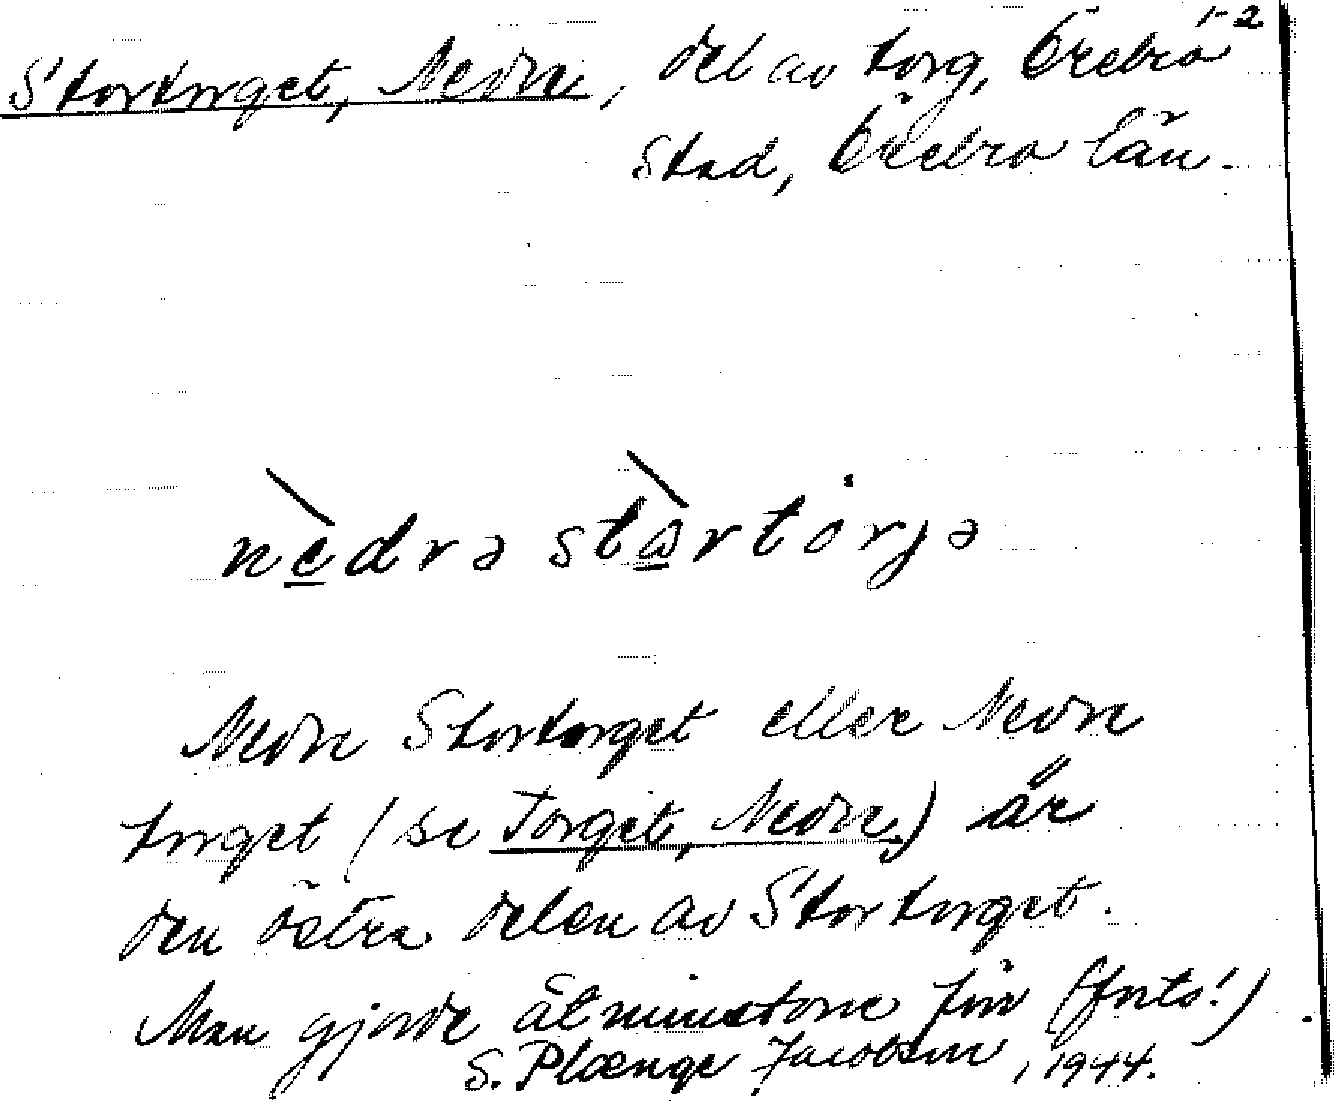 1-2
Stortorget, Nedre, del av torg, Örebro
stad, Örebro län.
nèdrə stòrtórjə
Nedre Stortorget eller Nedre
torget (se Torget, Nedre) är
den östra delen av Stortorget.
Man gjorde åtminstone förr (forts!)
S. Plænge Jacobson, 1944.